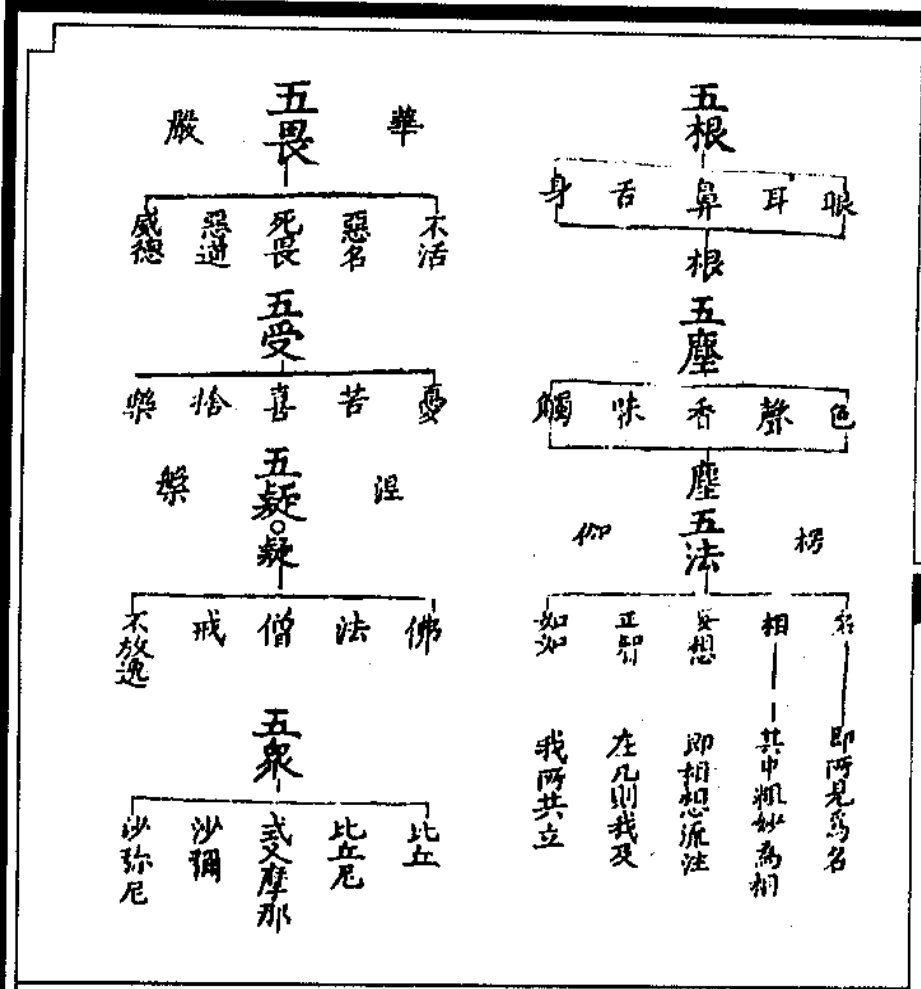 五根
眼
耳
鼻
舌
身
根
五塵
色
聲
香
味
觸
塵
楞
五法
伽
名
相
妄想
正智
如如
即所見為名
其中粗妙為相
即相想流注
在凡則我及
我所共立
華
五畏
嚴
不活
惡名
死畏
惡道
威德
五受
憂
苦
喜
捨
樂
涅
五疑。疑
槃
佛
法
僧
戒
不放逸
五衆
比丘
比丘尼
式叉摩那
沙彌
沙弥尼